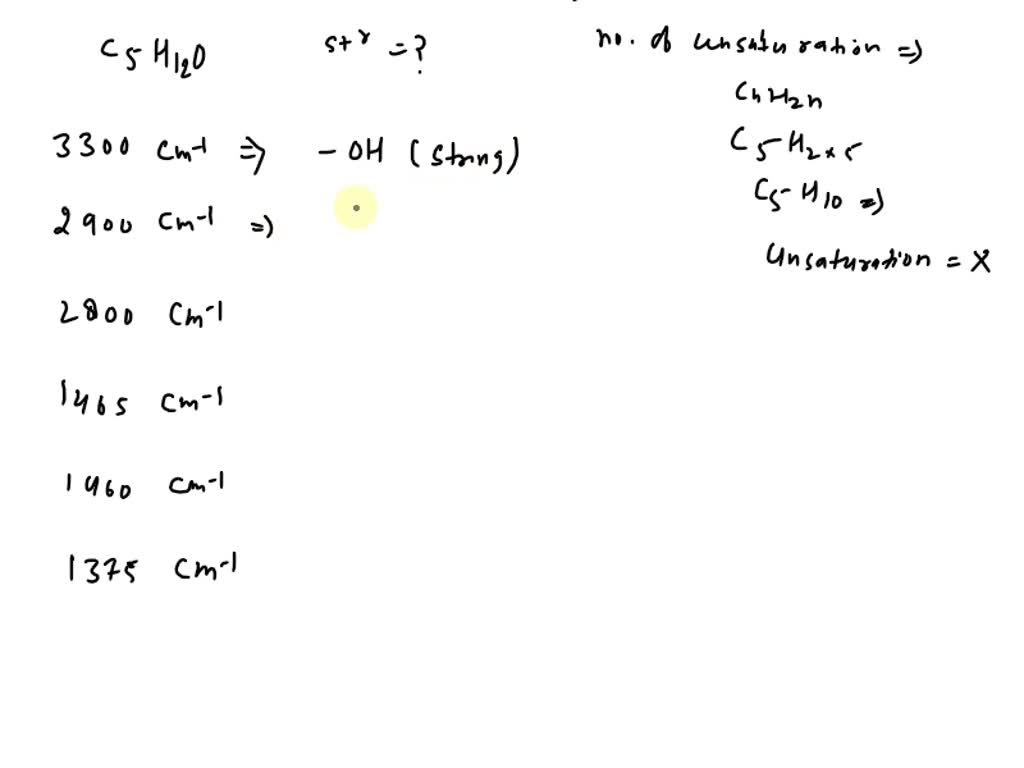 C5H12O str = ?
no. of unsaturation ⇒
CnH2n
C5H2×5
C5H10 ⇒
Unsaturation = X
3300 cm-1 ⇒ - OH (strong)
2900 cm-1 ⇒
2800 cm-1
1465 cm-1
1460 cm-1
1375 cm-1